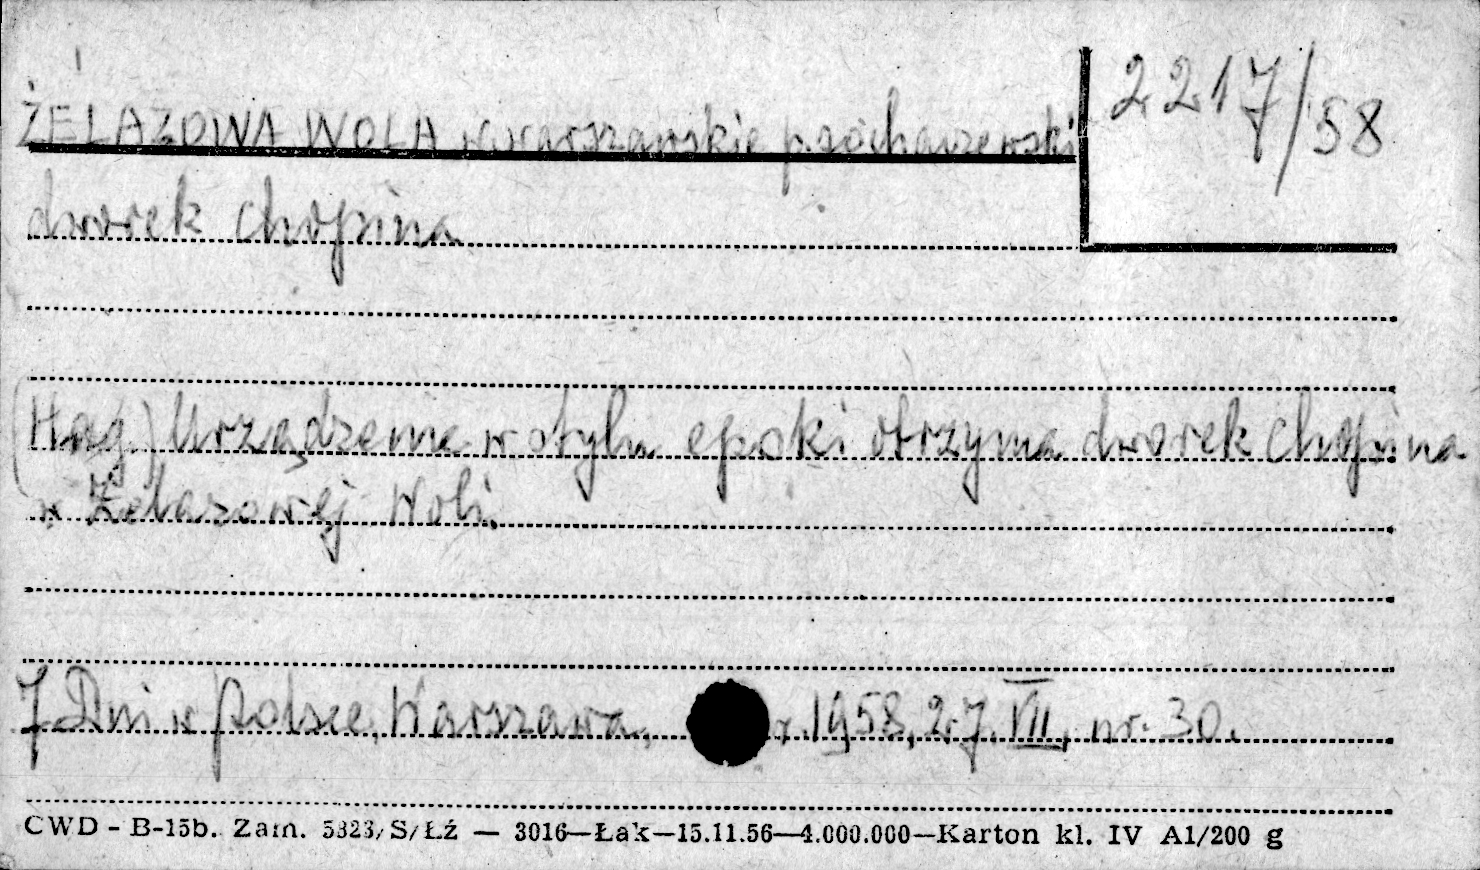 ŻELAZOWA WOLA w. warszawskie p. sochaczewski
2217/58
dworek Chopina
(Hag) Urządzenie w stylu epoki otrzyma dworek Chopina
w Żelazowej Woli.
7 Dni w Polsce, Warszawa, r. 1958, 27. VII, nr. 30.
CWD - B-15b. Zam. 5323/S/Łź — 3016—Łak—15.11.56—4.000.000—Karton kl. IV A1/200 g